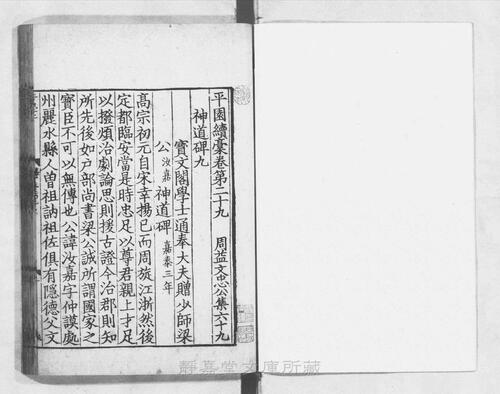 平園續稾卷第二十九　周益文忠公集六十九
神道碑九
寶文閣學士通奉大夫贈少師梁
公汝嘉神道碑嘉泰三年
高宗初元自宋幸揚已而周旋江浙然後
定都臨安當是時忠足以尊君親上才足
以撥煩治劇論思則援古證今治郡則知
所先後如戶部尚書梁公誠所謂國家之
寶臣不可以無傳也公諱汝嘉字仲謨處
州麗水縣人曾祖訥祖佐俱有隱德父文
靜嘉堂文庫所藏